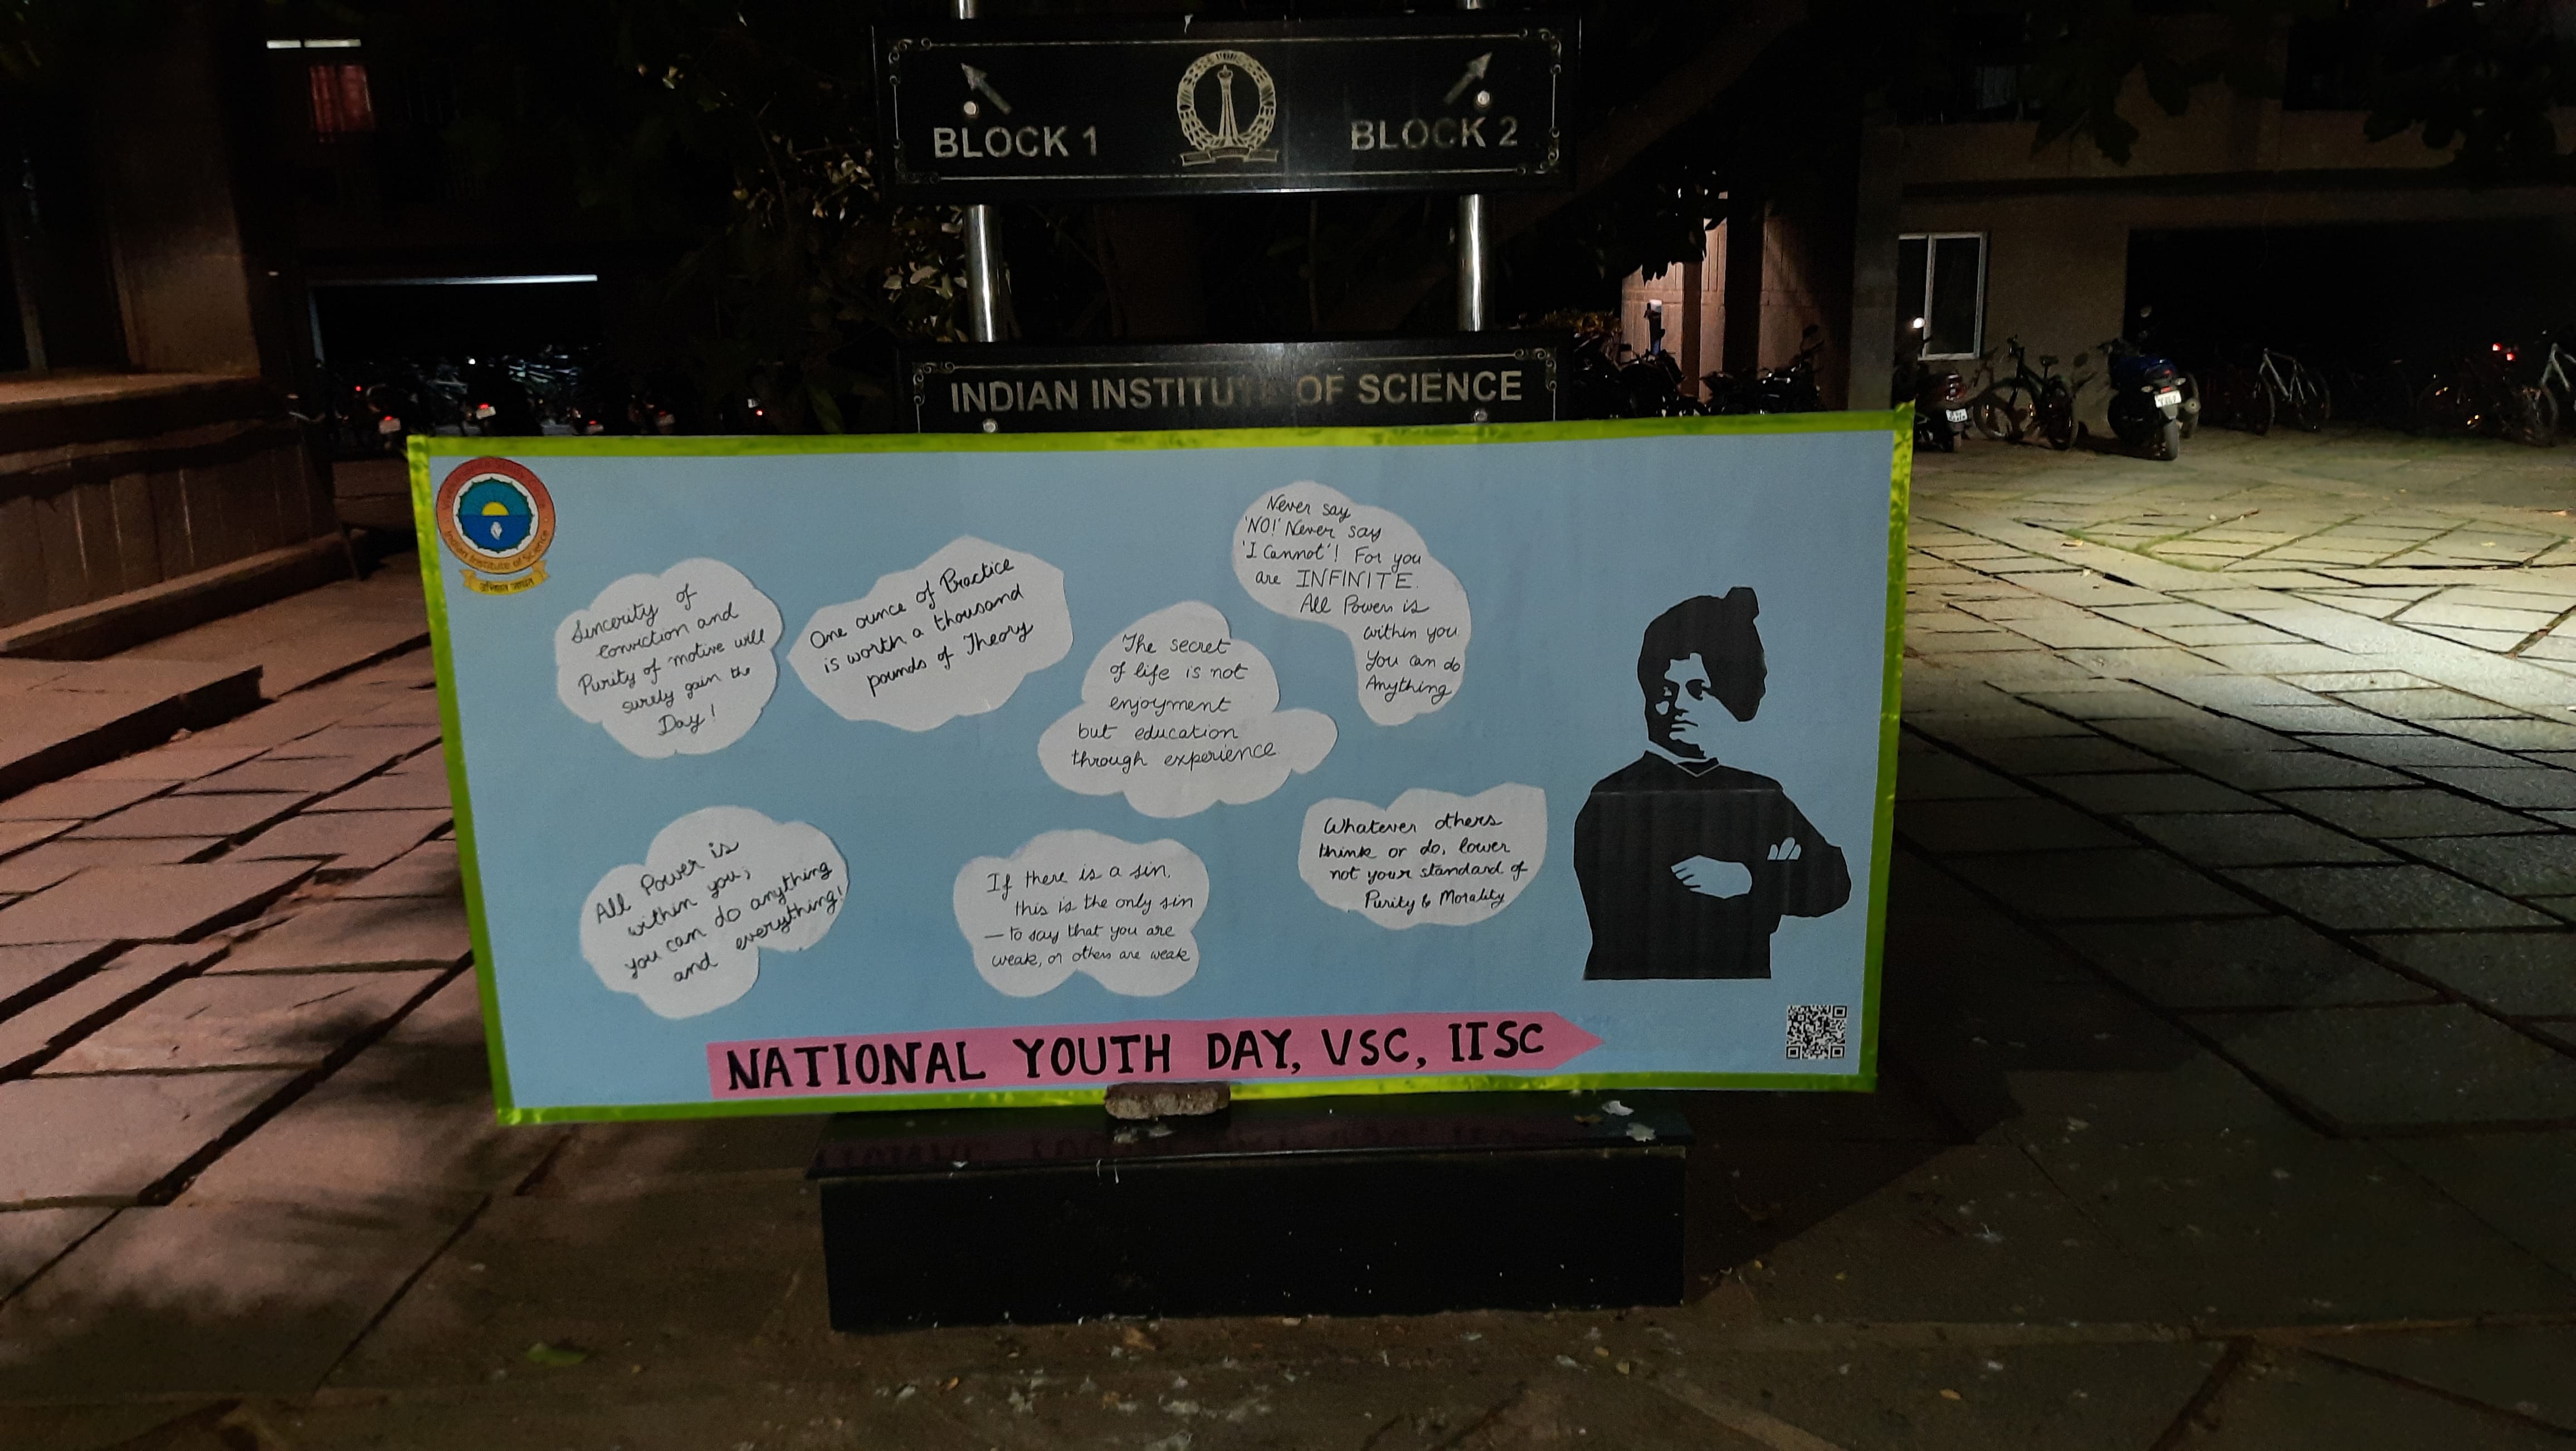 BLOCK 1
BLOCK 2
INDIAN INSTITUTE OF SCIENCE
Indian Institute of Science
Sincerity of
conviction and
Purity of motive will
surely gain the
Day!
One ounce of Practice
is worth a thousand
pounds of Theory
The secret
of life is not
enjoyment
but education
through experience
Never say
'NO!' Never say
'I Cannot'! For you
are INFINITE.
All Power is
within you
You can do
Anything
All Power is
within you;
you can do anything
and everything!
If there is a sin,
this is the only sin
— to say that you are
weak, or others are weak
Whatever others
think or do, lower
not your standard of
Purity & Morality
NATIONAL YOUTH DAY, VSC, IISC